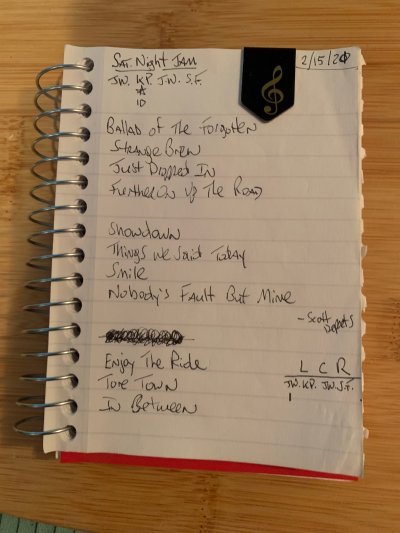 Sat. Night Jam
2/15/20
J.W. K.P. J.W. S.F.
10
Ballad of The Forgotten
Strange Brew
Just Dropped In
Further On Up The Road
Showdown
Things We Said Today
Smile
Nobody's Fault But Mine
- Scott Departs
Enjoy The Ride
Tore Town
In Between
L C R
J.W. K.P. J.W. S.F.
1